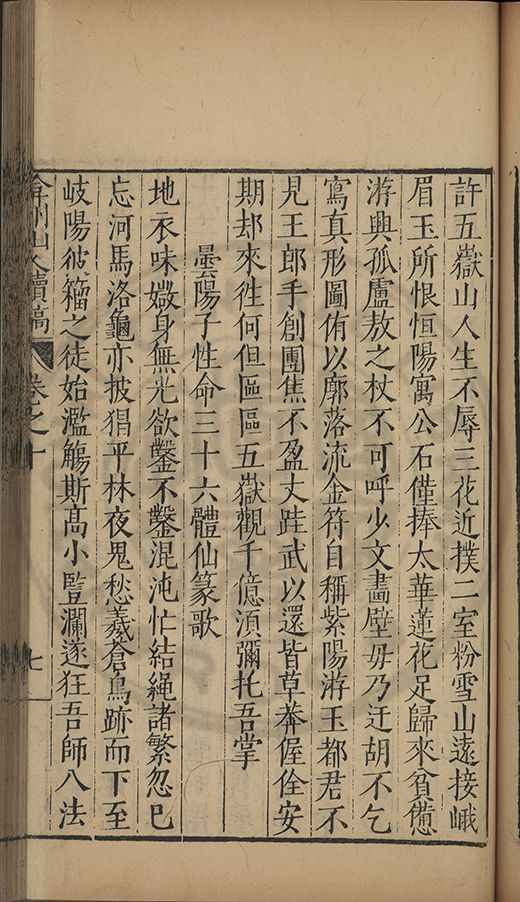 許五嶽山人生不辱三花近撲二室粉雪山遠接峨
眉玉所恨恒陽寓公石僅捧太華蓮花足歸來貧憊
游興孤盧敖之杖不可呼少文畫壁毋乃迂胡不乞
寫真形圖侑以廓落流金符自稱紫陽游玉都君不
見王郎手創團焦不盈丈跬武以還皆草莽偓佺安
期却來徃何但區區五嶽觀千億湏彌托吾掌
曇陽子性命三十六體仙篆歌
地衣味媺身無光欲鑿不鑿混沌忙結繩諸繁忽已
忘河馬洛龜亦披猖平林夜鬼愁羲蒼鳥跡而下至
岐陽彼籀之徒始濫觴斯高小豎瀾遂狂吾師八法
弇州山人續稿 卷之十
七